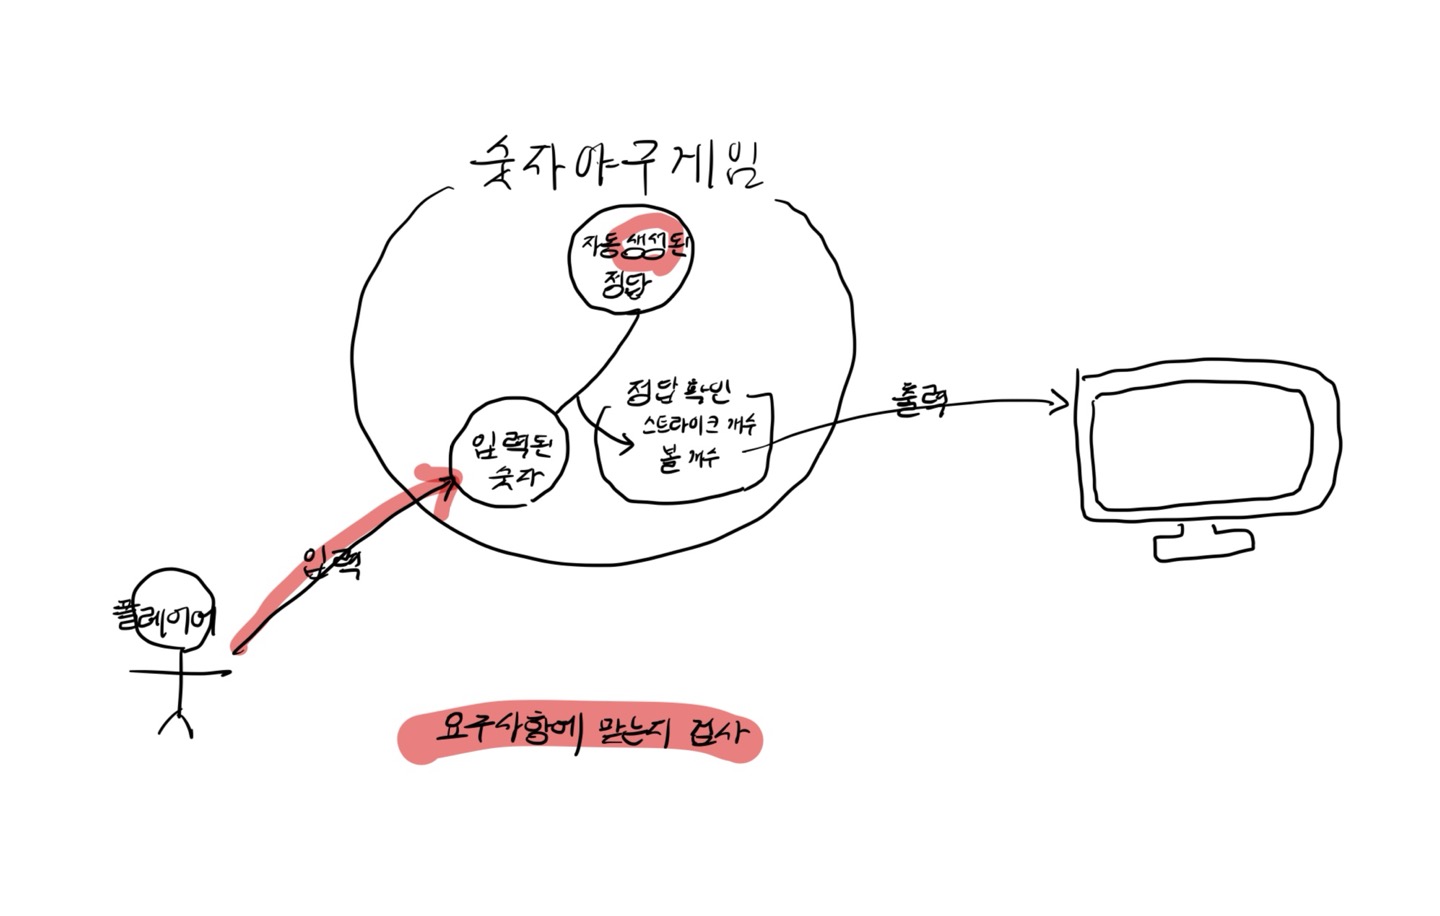 숫자야구게임
자동생성된
정답
정답 확인
스트라이크 개수
볼 개수
출력
입력된
숫자
입력
플레이어
요구사항에 맞는지 검사